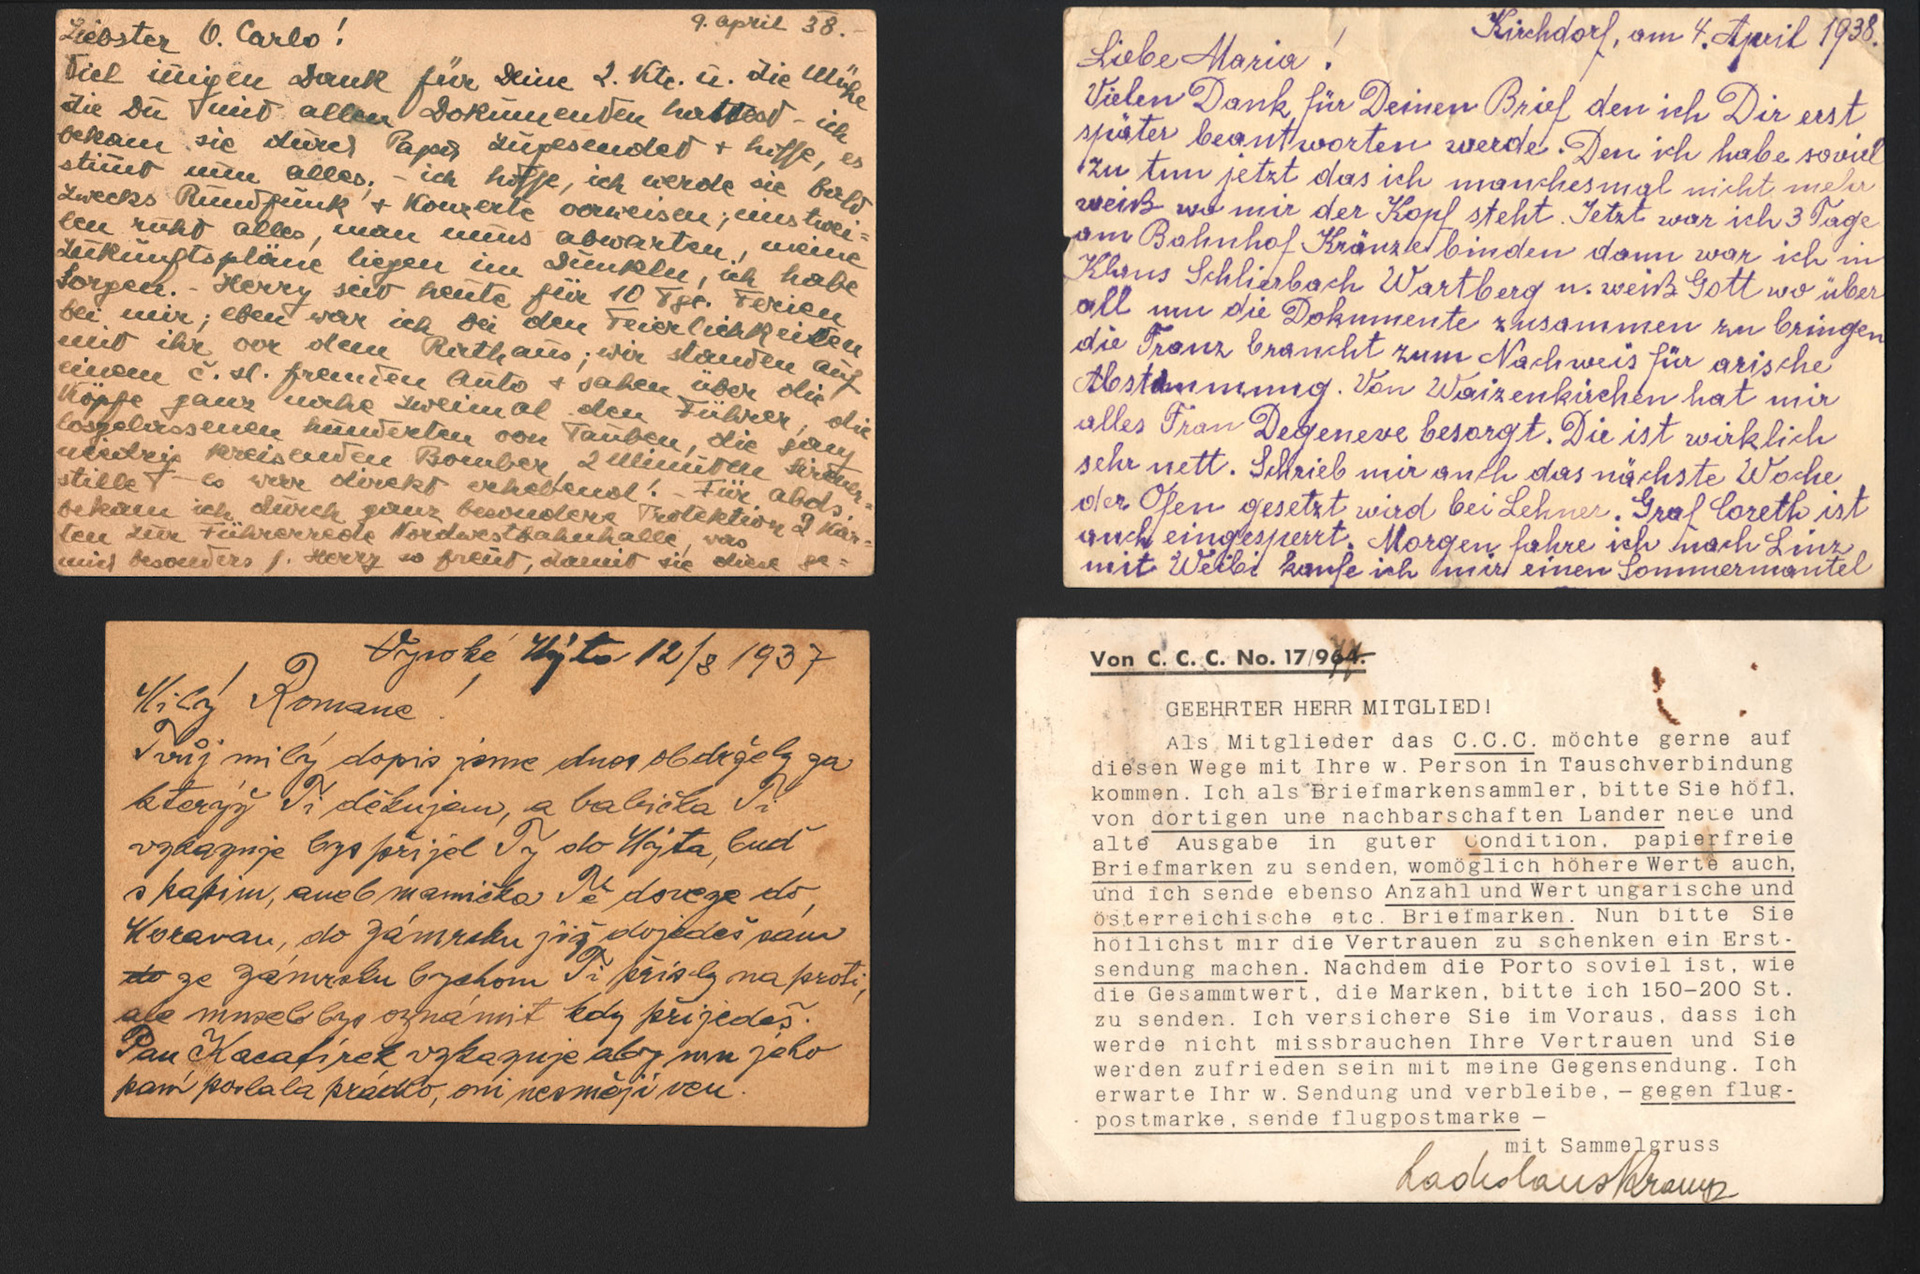 9. april 38.-
Liebster O. Carlo!
Viel innigen Dank für Deine 2. Kte. u. die Mühe
die Du mit allen Dokumenten hattest - ich
bekam sie durch Papa zugesendet + hoffe, es
stimmt nun alles; - ich hoffe, ich werde sie bald
zwecks Rundfunk + Konzerte vorweisen; einstwei=
len ruht alles, man muss abwarten, meine
Zukunftspläne liegen im Dunkeln, ich habe
Sorgen. - Herry seit heute für 10 Tge. Ferien
bei mir; eben war ich bei den Feierlichkeiten
mit ihr vor dem Rathaus; wir standen auf
einem č. sl. fremden Auto + sahen über die
Köpfe ganz nahe zweimal den Führer, die
losgelassenen hunderten von Tauben, die ganz
niedrig kreisenden Bomber, 2 Minuten
stille - es war direkt erhebend! - Für abds.
bekam ich durch ganz besondere Protektion 2 Kar=
ten zur Führerrede Nordwestbahnhalle, was
mich besonders f. Herry so freut, damit sie diese ge=
Kirchdorf, am 4. April 1938.
Liebe Maria!
Vielen Dank für Deinen Brief den ich Dir erst
später beantworten werde. Den ich habe soviel
zu tun jetzt das ich manchesmal nicht mehr
weiß wo mir der Kopf steht. Jetzt war ich 3 Tage
am Bahnhof Kränze binden dann war ich in
Klaus Schlierbach Wartberg u. weiß Gott wo über
all um die Dokumente zusammen zu bringen
die Franz braucht zum Nachweis für arische
Abstammung. Von Waizenkirchen hat mir
alles Frau Degeneve besorgt. Die ist wirklich
sehr nett. Schrieb mir auch das nächste Woche
der Ofen gesetzt wird bei Lehner. Graf Coreth ist
auch eingesperrt. Morgen fahre ich nach Linz
mit Weibi kaufe ich mir einen Sommermantel
Vysoké Mýto 12/8 1937
Milý Romane!
Tvůj milý dopis jsme dnes obdržely za
kterýž Ti děkujem, a babička Ti
vzkazuje bys přijel Ty do Mýta, buď
s papim, aneb mamička Tě doveze do
Moravan, do Zámrsku již dojedeš sam
do ze Zámrsku bychom Ti přisly na proti,
ale musel bys oznámit kdy přijedeš.
Pan Kacafírek vzkazuje aby mu jeho
paní poslala prádlo, oni nesmějí ven.
Von C. C. C. No. 17/964.
GEEHRTER HERR MITGLIED!
Als Mitglieder das C.C.C. möchte gerne auf
diesen Wege mit Ihre w. Person in Tauschverbindung
kommen. Ich als Briefmarkensammler, bitte Sie höfl.
von dortigen une nachbarschaften Lander neue und
alte Ausgabe in guter Condition, papierfreie
Briefmarken zu senden, womöglich höhere Werte auch,
und ich sende ebenso Anzahl und Wert ungarische und
österreichische etc. Briefmarken. Nun bitte Sie
höflichst mir die Vertrauen zu schenken ein Erst-
sendung machen. Nachdem die Porto soviel ist, wie
die Gesammtwert, die Marken, bitte ich 150-200 St.
zu senden. Ich versichere Sie im Voraus, dass ich
werde nicht missbrauchen Ihre Vertrauen und Sie
werden zufrieden sein mit meine Gegensendung. Ich
erwarte Ihr w. Sendung und verbleibe, - gegen flug-
postmarke, sende flugpostmarke -
mit Sammelgruss
Ladislaus